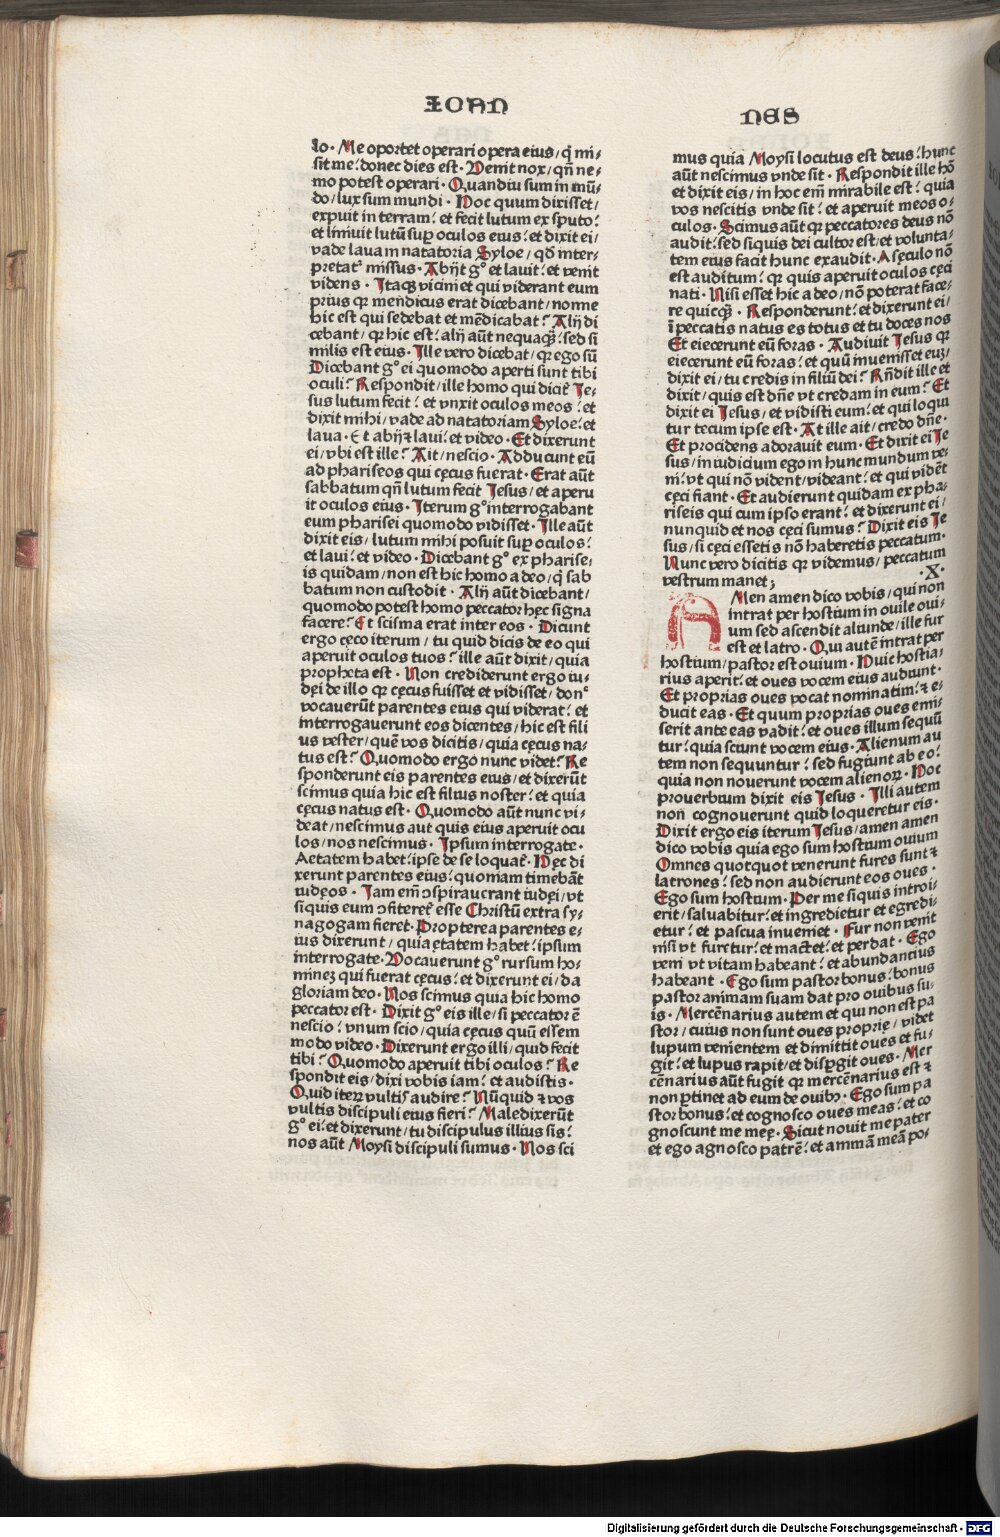 IOAN
lo· Me oportet operari opera eius/ q̄ mi⸗
sit me: donec dies est· Venit nox/ qn̄ ne⸗
mo potest operari· Quandiu sum in mū⸗
do/ lux sum mundi· Hoc quum dixisset/
expuit in terram: et fecit lutum ex sputo:
et liniuit lutū sup oculos eius: et dixit ei/
vade laua in natatoria Syloe/ qd̄ inter⸗
pretat᷑ missus· Abijt gº et lauit: et venit
videns· Itaq3 vicini et qui viderant eum
prius qꝛ mendicus erat dicebant/ nonne
hic est qui sedebat et mēdicabat? Alij di
cebant/ qꝛ hic est: alij aūt nequaq̄3: sed si
milis est eius· Ille vero dicebat/ qꝛ ego sū
Dicebant gº ei quomodo aperti sunt tibi
oculi? Respondit/ ille homo qui dicit᷑ Ie⸗
sus lutum fecit: et vnxit oculos meos: et
dixit mihi/ vade ad natatoriam Syloe: et
laua· Et abij ⁊ laui: et video· Et dixerunt
ei/ vbi est ille? Ait/ nescio· Adducunt eū
ad phariseos qui cęcus fuerat· Erat aūt
sabbatum qn̄ lutum fecit Iesus/ et aperu
it oculos eius· Iterum gº interrogabant
eum pharisei quomodo vidisset· Ille aūt
dixit eis/ lutum mihi posuit sup oculos:
et laui: et video· Dicebant gº ex pharise⸗
is quidam/ non est hic homo a deo/ q̄ sab
batum non custodit· Alij aūt dicebant/
quomodo potest homo peccator hęc signa
facere? Et scisma erat inter eos· Dicunt
ergo cęco iterum/ tu quid dicis de eo qui
aperuit oculos tuos? ille aūt dixit/ quia
propheta est· Non crediderunt ergo iu⸗
dęi de illo qꝛ cęcus fuisset et vidisset/ donᶜ
vocauerūt parentes eius qui viderat: et
interrogauerunt eos dicentes/ hic est fili
us vester/ quē vos dicitis/ quia cęcus na⸗
tus est? Quomodo ergo nunc videt? Re
sponderunt eis parentes eius/ et dixerūt
scimus quia hic est filius noster: et quia
cęcus natus est· Quomodo aūt nunc vi⸗
deat/ nescimus aut quis eius aperuit ocu
los/ nos nescimus· Ipsum interrogate·
Aetatem habet: ipse de se loquat᷑· Hec di
xerunt parentes eius: quoniam timebāt
iudęos· Iam em̄ ꝯspirauerant iudęi/ vt
si quis eum ꝯfiteret᷑ esse Christū extra sy⸗
nagogam fieret· Propterea parentes e⸗
ius dixerunt/ quia ętatem habet: ipsum
interrogate· Vocauerunt gº rursum ho⸗
minez qui fuerat cęcus: et dixerunt ei/ da
gloriam deo· Nos scimus quia hic homo
peccator est· Dixit gº eis ille/ si peccator ē
nescio: vnum scio/ quia cęcus quū essem
modo video· Dixerunt ergo illi/ quid fecit
tibi? Quomodo aperuit tibi oculos? Re
spondit eis/ dixi vobis iam: et audistis·
Quid iterꝝ vultis audire? Nūquid ⁊ vos
vultis discipuli eius fieri? Maledixerūt
gº ei: et dixerunt/ tu discipulus illius sis:
nos aūt Moysi discipuli sumus· Nos sci
NES
mus quia Moysi locutus est deus: hunc
aūt nescimus vnde sit· Respondit ille hō
et dixit eis/ in hoc em̄ mirabile est: quia
vos nescitis vnde sit: et aperuit meos o⸗
culos· Scimus aūt qꝛ peccatores deus nō
audit: sed si quis dei cultor est/ et volunta⸗
tem eius facit hunc exaudit· A sęculo nō
est auditum: qꝛ quis aperuit oculos cęci
nati· Nisi esset hic a deo/ nō poterat face⸗
re quicq̄3· Responderunt: et dixerunt ei/
ī peccatis natus es totus et tu doces nos
Et eiecerunt eū foras· Audiuit Iesus qꝛ
eiecerunt eū foras: et quū inuenisset euz/
dixit ei/ tu credis in filiū dei? Rn̄dit ille et
dixit/ quis est dn̄e vt credam in eum? Et
dixit ei Iesus/ et vidisti eum: et qui loqui
tur tecum ipse est· At ille ait/ credo dn̄e·
Et procidens adorauit eum· Et dixit ei Ie
sus/ in iudicium ego in hunc mundum ve⸗
ni: vt qui nō vident/ videant: et qui vidēt
cęci fiant· Et audierunt quidam ex pha⸗
riseis qui cum ipso erant: et dixerunt ei/
nunquid et nos cęci sumus? Dixit eis Ie
sus/ si cęci essetis nō haberetis peccatum·
Nunc vero dicitis qꝛ videmus/ peccatum
vestrum manet;
·X·
AMen amen dico vobis/ qui non
intrat per hostium in ouile oui⸗
um sed ascendit aliunde/ ille fur
est et latro· Qui autē intrat per
hostium/ pastor est ouium· Huic hostia⸗
rius aperit: et oues vocem eius audiunt·
Et proprias oues vocat nominatim: ⁊ e⸗
ducit eas· Et quum proprias oues emi⸗
serit ante eas vadit: et oues illum sequū
tur: quia sciunt vocem eius· Alienum au
tem non sequuntur: sed fugiunt ab eo:
quia non nouerunt vocem alienoꝝ· Hoc
prouerbium dixit eis Iesus· Illi autem
non cognouerunt quid loqueretur eis·
Dixit ergo eis iterum Iesus/ amen amen
dico vobis quia ego sum hostium ouium
Omnes quotquot venerunt fures sunt ⁊
latrones: sed non audierunt eos oues·
Ego sum hostium· Per me si quis introi⸗
erit/ saluabitur: et ingredietur et egredi⸗
etur: et pascua inueniet· Fur non venit
nisi vt furetur: et mactet: et perdat· Ego
veni vt vitam habeant: et abundantius
habeant· Ego sum pastor bonus: bonus
pastor animam suam dat pro ouibus su⸗
is· Mercēnarius autem et qui non est pa
stor/ cuius non sunt oues proprię/ videt
lupum venientem et dimittit oues et fu⸗
git: et lupus rapit/ et dispgit oues· Mer
cēnarius aūt fugit qꝛ mercēnarius est ⁊
non ptinet ad eum de ouibꝫ· Ego sum pa
stor bonus: et cognosco oues meas: et co
gnoscunt me meę· Sicut nouit me pater
et ego agnosco patrē: et ammām meā po⸗
Digitalisierung gefördert durch die Deutsche Forschungsgemeinschaft - DFG